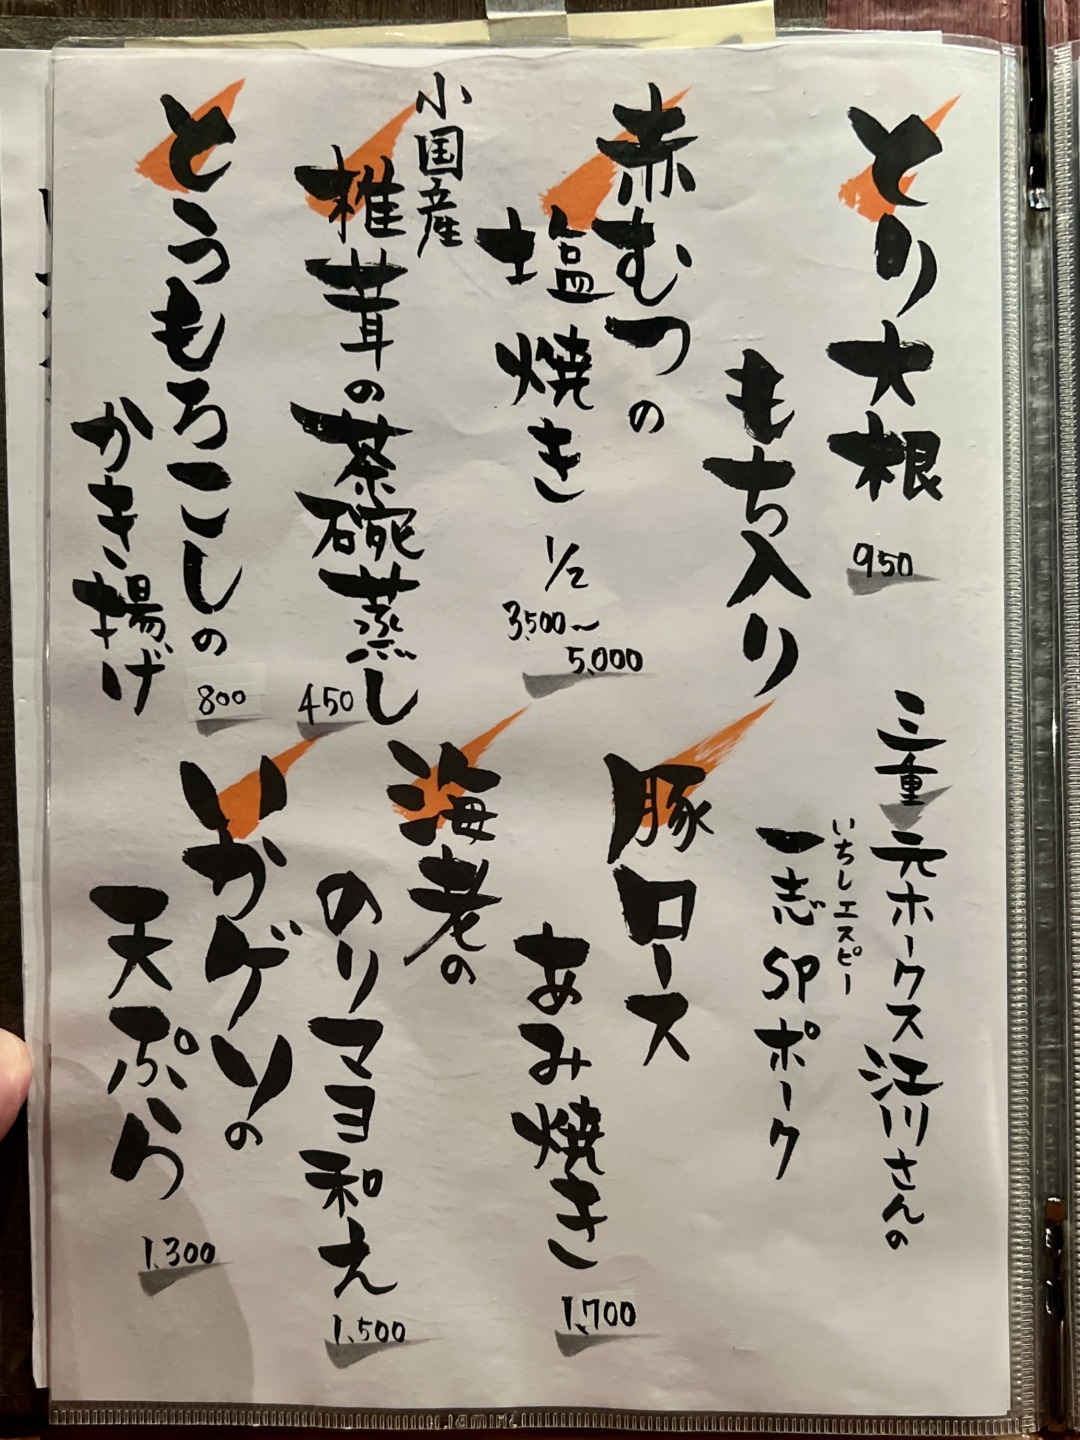 とり大根
もち入り
950
赤むつの
塩焼き 1/2
3,500〜
5,000
小国産
椎茸の茶碗蒸し
450
とうもろこしの
かき揚げ
800
三重 元ホークス江川さんの
いちしエスピー
一志SPポーク
豚ロース
あみ焼き
1,700
海老の
のりマヨ和え
1,500
いかゲソの
天ぷら
1,300